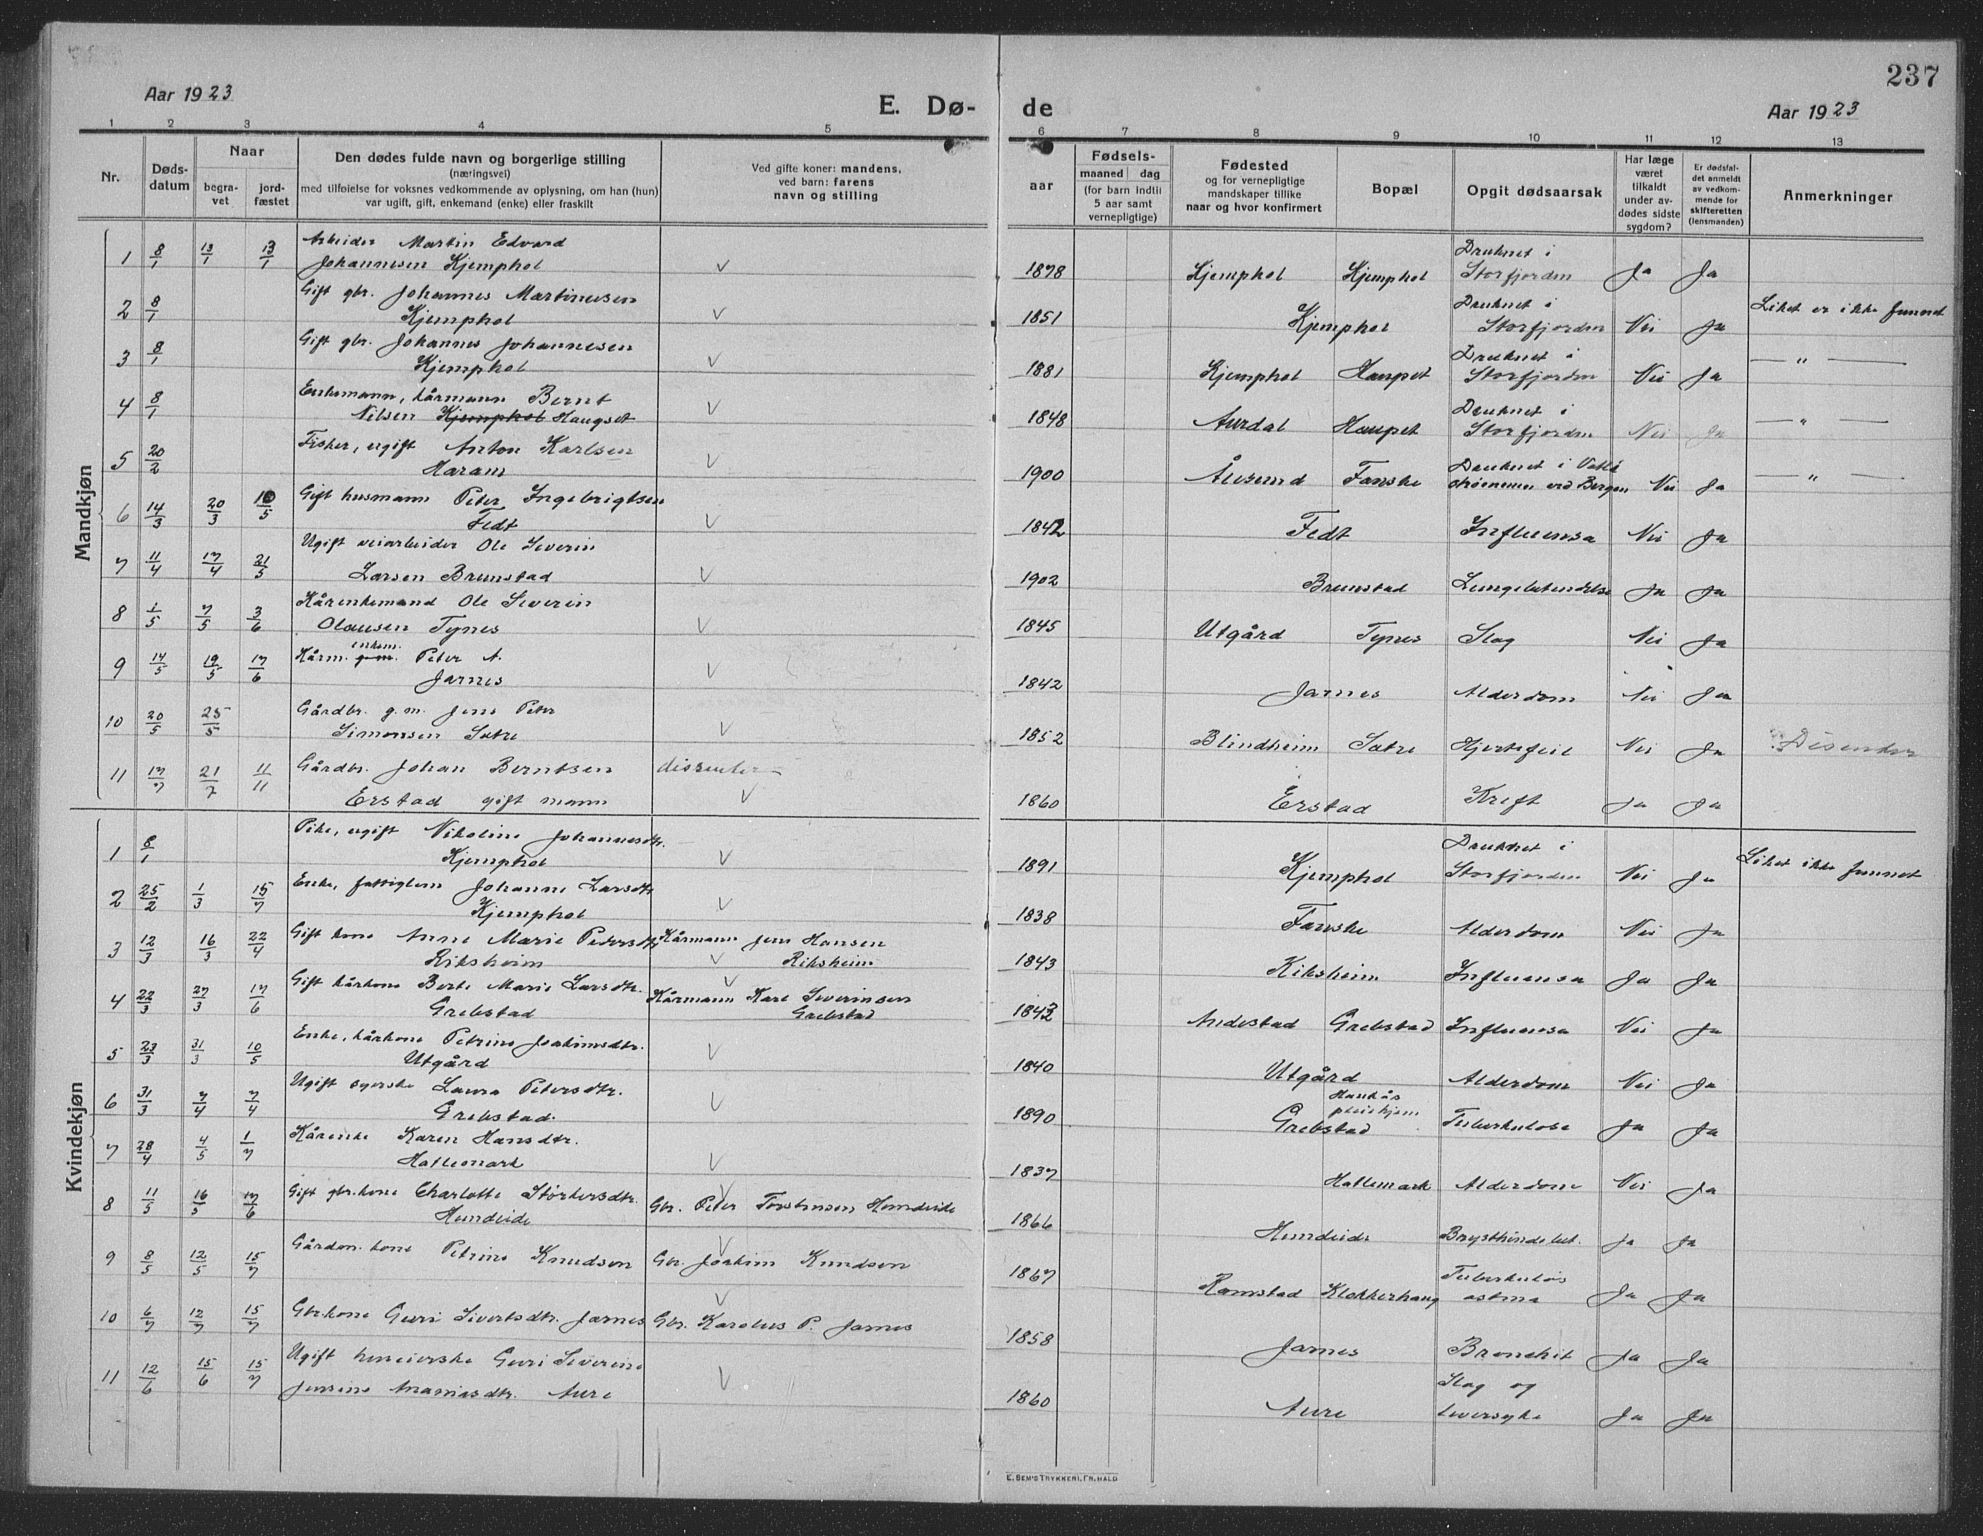 237
Aar 1923
E. Dø-
de
Aar 1923
1 2 3 4 5
6 7 8 9 10 11 12 13
Nr.
Døds-
datum
Naar
begra-
vet
jord-
fæstet
Den dødes fulde navn og borgerlige stilling
(næringsvei)
med tilføielse for voksnes vedkommende av oplysning, om han (hun)
var ugift, gift, enkemand (enke) eller fraskilt
Ved gifte koner: mandens,
ved barn: farens
navn og stilling
Fødsels-
aar
maaned dag
(for barn indtil
5 aar samt
vernepligtige)
Fødested
og for vernepligtige
mandskaper tillike
naar og hvor konfirmert
Bopæl
Opgit dødsaarsak
Har læge
været
tilkaldt
under av-
dødes sidste
sygdom?
Er dødsfal-
det anmeldt
av vedkom-
mende for
skifteretten
(lensmanden)
Anmerkninger
Mandkjøn
Arbeider Martin Edvard Druknet i
1 8/1 13/1 13/1 Johannesen Kjemphol V 1878 Kjemphol Kjemphol Storfjorden Ja Ja
Gift gbr. Johannes Martinusen Druknet i
2 8/1 Kjemphol V 1851 Kjemphol Storfjorden Nei Ja Liket er ikke funnet
Gift gbr. Johannes Johannesen Druknet i
3 8/1 Kjemphol V 1881 Kjemphol Storfjorden Nei Ja — " —
Enkemann, kårmann Bernt Druknet i
4 8/1 Nilsen Kjemphol Haugset V 1848 Aurdal Storfjorden Nei Ja — " —
Fisker, ugift Anton Karlsen Druknet i
5 20/2 Haram V 1900 Ålesund Fauske ved Bergen Nei Ja — " —
Gift husmann Peter Ingebrigtsen
6 14/3 20/3 10/5 Fedt V 1842 Fedt Influensa Nei Ja
Ugift veiarbeider Ole Severin
7 11/4 17/4 21/5 Larsen Brunstad V 1902 Brunstad Lungebetendelse Ja Ja
Kårenkemand Ole Severin
8 1/5 7/5 3/6 Olausen Tynes V 1845 Utgård Tynes Slag Nei Ja
enkem.
9 14/5 19/5 17/6 Kårm. g.m. Peter A.
Jarnes V 1842 Jarnes Alderdom Nei Ja
Gårdbr. g.m. Jens Peter
10 20/5 25/5 Simonsen Sætre V 1852 Blindheim Sætre Hjertefeil Nei Ja Disenter
11 17/7 21/7 11/11 Gårdbr. Johan Berntsen dissenter
Erstad gift mann V 1860 Erstad Kreft Ja Ja
Kvindekjøn
Pike, ugift Nikoline Johannesdtr. Druknet i
1 8/1 Kjemphol V 1891 Kjemphol Storfjorden Nei Ja Liket ikke funnet
Enke, fattiglem Johanne Larsdtr
2 25/2 1/3 15/7 Kjemphol V 1838 Fauske Alderdom Nei Ja
Gift kone Anne Marie Pedersdtr Kårmann Jens Hansen
3 12/3 16/3 22/4 Riksheim V Riksheim 1843 Riksheim Influensa Ja Ja
Gift kårkone Berte Marie Larsdtr. V Kårmann Karl Severinsen
4 22/3 27/3 17/6 Grebstad Grebstad 1843 Andestad Grebstad Influensa Nei Ja
Enke, kårkone Petrine Joakimsdtr.
5 23/3 31/3 10/5 Utgård V 1840 Utgård Alderdom Nei Ja
Ugift syerske Laura Petersdtr.
6 31/3 7/4 7/4 Grebstad. V 1890 Grebstad pleiehjem Tuberkulose Ja Ja
Kårenke Karen Hansdtr.
7 28/4 4/5 1/7 Hatlemark V 1837 Hatlemark Alderdom Nei Ja
Gift gbr.kone Charlotte Størkersdtr. V Gbr. Peter Torstensen Hundeide
8 11/5 16/5 17/6 Hundeide 1866 Hundeide Brysthindebet. Ja Ja
9 8/5 12/5 15/7 Gårdm. kone Petrine Knudsen V Gbr. Joakim Knudsen 1867 Ramstad Klokkerhaug Tuberkuløs
astma Ja Ja
10 6/7 12/7 15/7 Gbr.kone Guri Sivertsdtr. Jarnes V Gbr. Karolus P. Jarnes 1858 Jarnes Bronchit Ja Ja
Ugift Guri Severine Slag og
11 12/6 15/6 15/7 Jensine Ananiasdtr. Aure V 1860 Aure leversyke Ja Ja
E. SEM'S TRYKKERI, FR.HALD